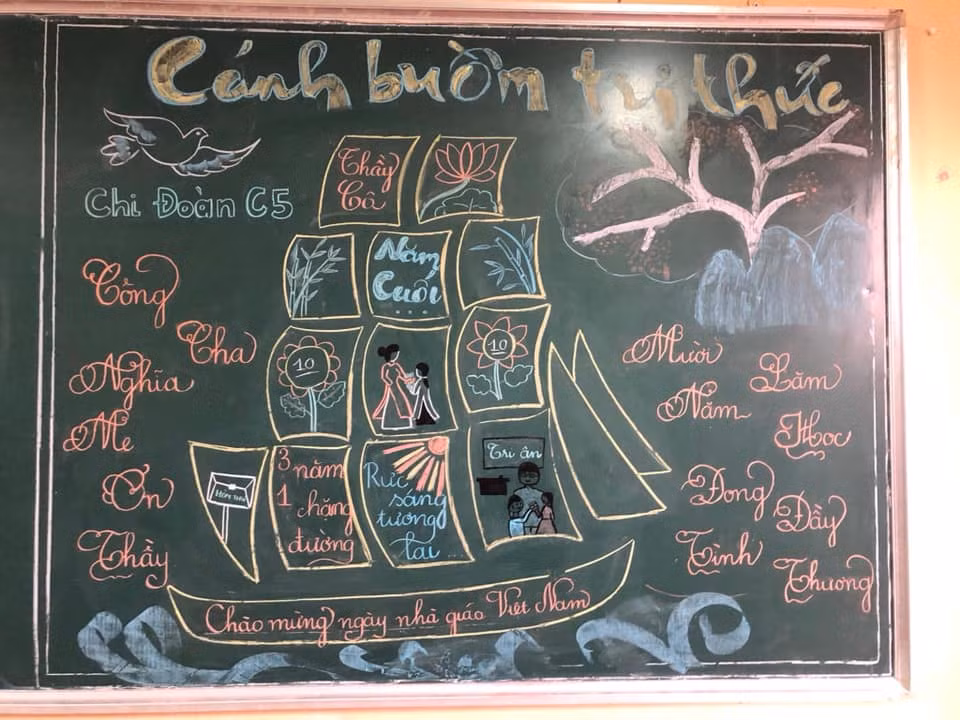 Cánh buồm tri thức
Chi Đoàn C5
Thầy
Cô
Năm
Cuối
...
10
10
Công
Cha
Nghĩa
Mẹ
Ơn
Thầy
Mười
Lăm
Năm
Học
Đong
Đầy
Tình
Thương
3 năm
1 chặng
đường
Rực
sáng
tương
lai ...
Tri ân
Chào mừng ngày nhà giáo Việt Nam